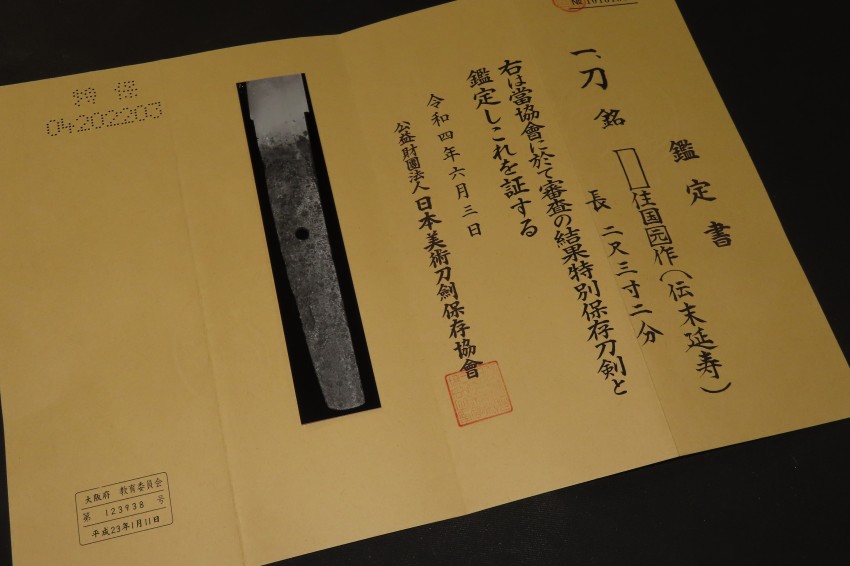 鑑定書
一、刀 銘 住国元作(伝末延寿)
長 二尺三寸二分
右は當協會に於て審査の結果特別保存刀剣と
鑑定しこれを証する
令和四年六月三日
公益財團法人日本美術刀劍保存協會
特保
04202203
大阪府 教育委員会
第 123938 号
平成23年1月11日